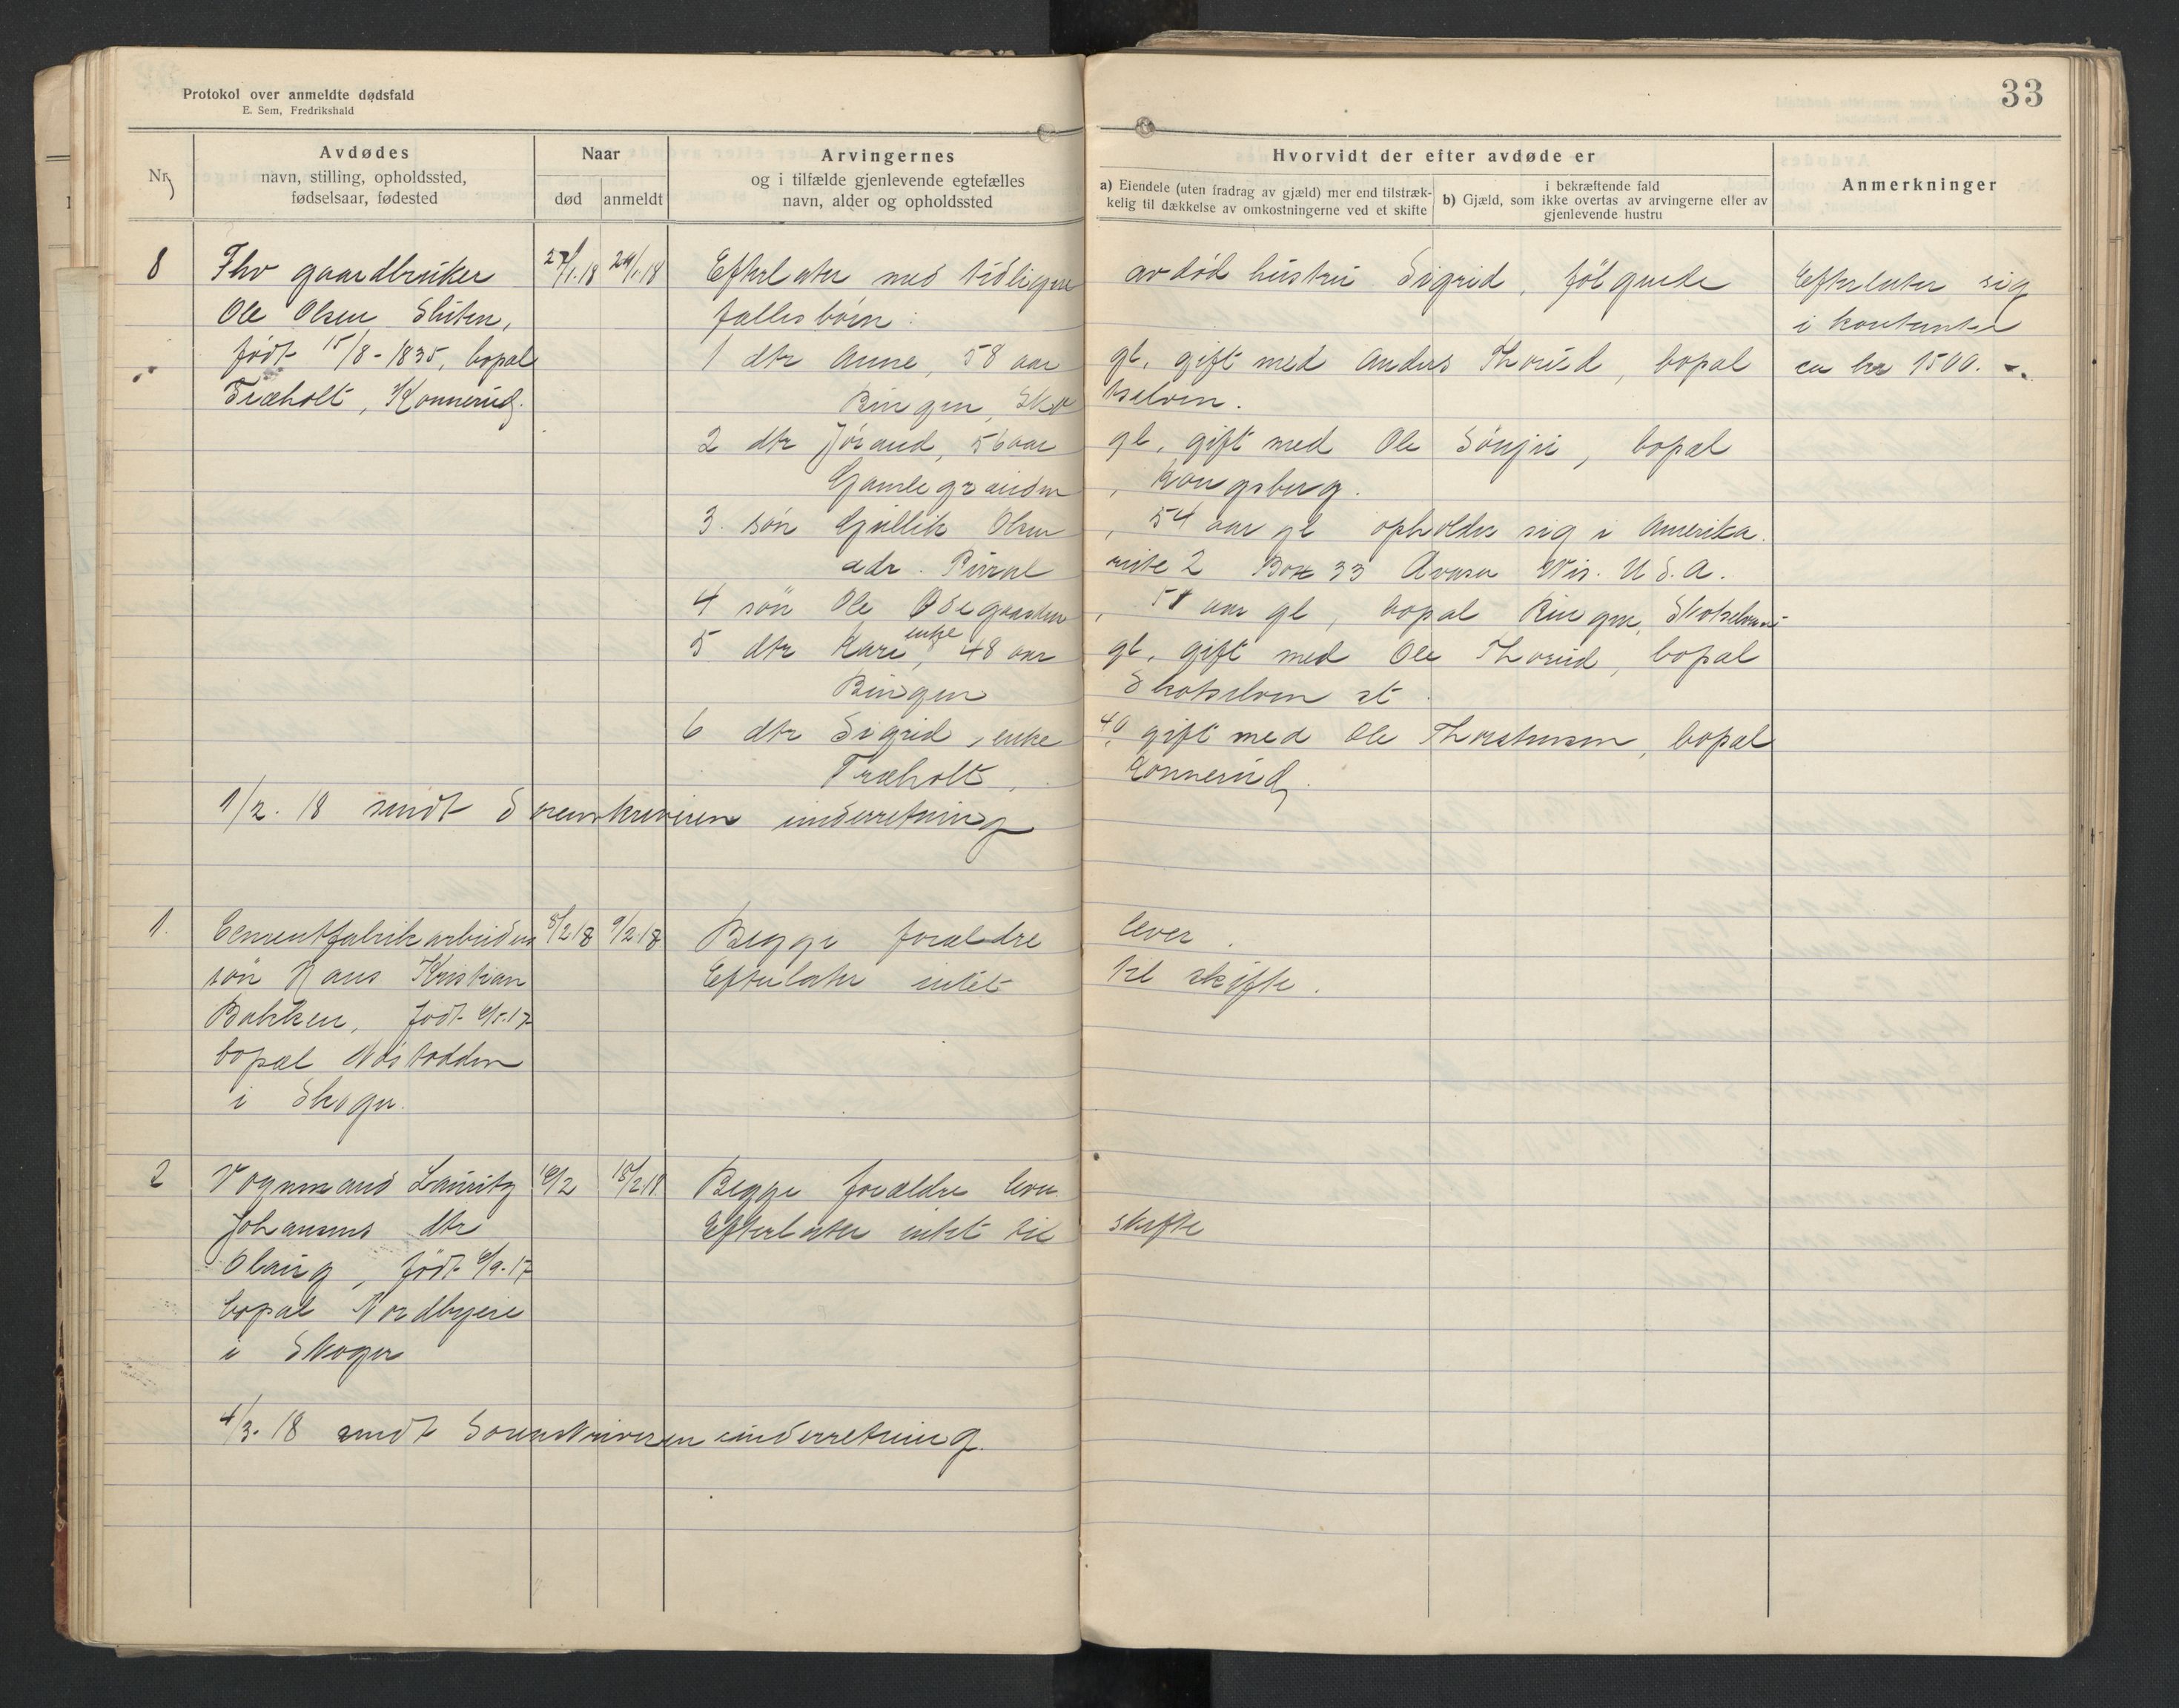 Protokol over anmeldte dødsfald
E. Sem, Fredrikshald
33
Nr.
Avdødes
navn, stilling, opholdssted,
fødselsaar, fødested
Naar
død
anmeldt
Arvingernes
og i tilfælde gjenlevende egtefælles
navn, alder og opholdssted
Hvorvidt der efter avdøde er
a) Eiendele (uten fradrag av gjæld) mer end tilstræk-
kelig til dækkelse av omkostningerne ved et skifte
i bekræftende fald
b) Gjæld, som ikke overtas av arvingerne eller av
gjenlevende hustru
Anmerkninger
8 Fhv gaardbruker 27/1.18 29/1.18 Efterlater med tidligere avdød hustru Sigrid, følgende Efterlater sig
Ole Olsen Sliten, fælles børn: i kontanter
født 15/8-1835, bopæl 1 dtr Anne, 58 aar gl, gift med Anders Thorud, bopæl ca kr 1500.-
Træholt, Konnerud. Bingen, Sko tselven.
2 dtr Jørand, 56 aar gl, gift med Ole , bopæl
Gamlegrænden, Kongsberg.
3. søn Gullik Olsen, 54 aar gl opholder sig i Amerika.
adr. Rural rute 2 Box 33 Wis. U.S.A.
4 søn Ole Ødegaarden, 51 aar gl, bopæl Bingen, Skotselven
5 dtr Kari, enke 48 aar gl, gift med Ole Thorud, bopæl
Bingen Skotselven st.
6 dtr Sigrid, enke 40, gift med Ole Thorstensen, bopæl
Træholt, Konnerud.
1/2. 18 sendt Sorenskriveren underretning
1. Cementfabrikarbeiders 8/2 18 9/2.18 Begge forældre lever.
søn Hans Kristian Efterlater intet til skifte.
Bakken, født 6/5.17
bopæl Nøstodden
i Skoger.
2 Vognmand Lauritz 16/2 18/2.18 Begge forældre lever
Johansens dtr Efterlater intet til skifte
Olaug, født 6/9.17
bopæl Nordbyeie
i Skoger
4/3. 18 sendt Sorenskriveren underretning.